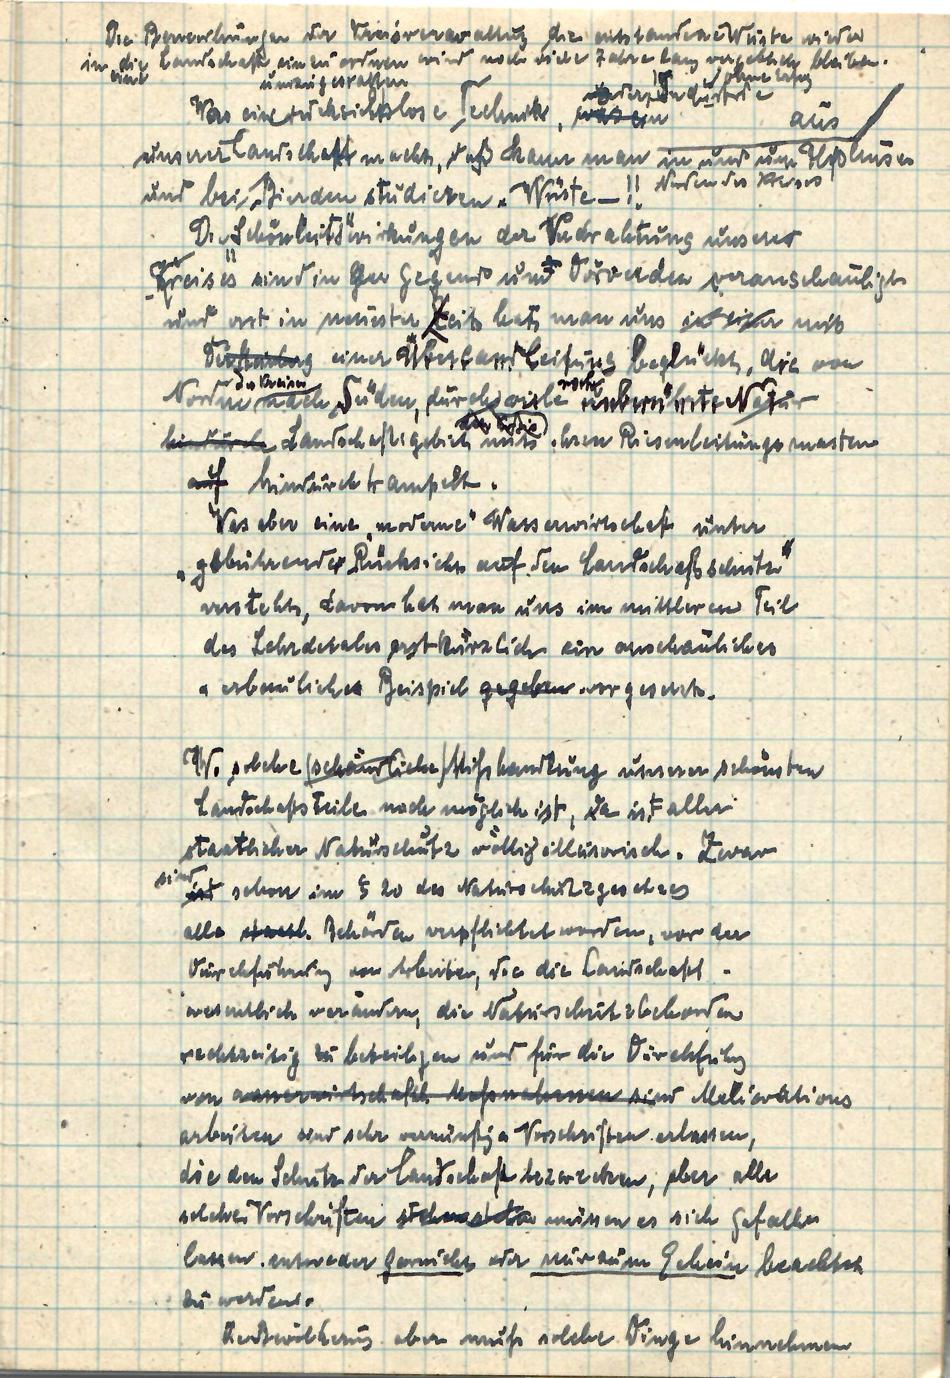 Die Bemerkungen der Kreisverwaltung, die entstandene Wüste wieder
in die Landschaft einzuordnen wird noch viele Jahre lang vergeblich bleiben.
eine umzugestalten ohne
Was eine rücksichtslose Technik, Industrie aus
unserer Landschaft macht, daß kann man in und um
und bei Bierden studieren. Wüste – !! Norden des Kreises
Die Schönheitswirkungen der Verdrahtung unseres
Kreises" sind in der Gegend um Dörverden veranschaulicht
und erst in neuester Zeit hat man uns mit
einer Überlandleitung beglückt, die von
Norden des Kreises nach Süden, durch viele noch unberührte Natur
hindurch Landschaftsgebiete mit ihren Riesenleitungsmasten
auf hindurchtrampelt.
Was aber eine „moderne" Wasserwirtschaft unter
„gebührender Rücksicht auf den Landschaftsschutz"
versteht, davon hat man uns im mittleren Teil
des Lehrdetales erst kürzlich ein anschauliches
erbauliches Beispiel gegeben vorgesetzt.
Wo solche (schändliche) Mißhandlung unserer schönsten
Landschaftsteile noch möglich ist, da ist aller
staatlicher Naturschutz völlig illusorisch. Zwar
sind ist schon im § 20 des Naturschutzgesetzes
alle staatl. Behörden verpflichtet worden, vor der
Durchführung von Arbeiten, die die Landschaft
wesentlich verändern, die Naturschutzbehörden
rechtzeitig zu beteiligen und für die Durchführg
von wasserwirtschaftl. Maßnahmen sind Meliorations
arbeiten sind sehr vernünftige Vorschriften erlassen,
die den Schutz der Landschaft bezwecken, aber alle
solche Vorschriften müssen es sich gefallen
lassen entweder garnicht oder nur zum Schein beachtet
zu werden.
Die Bevölkerung aber muß solche Dinge hinnehmen